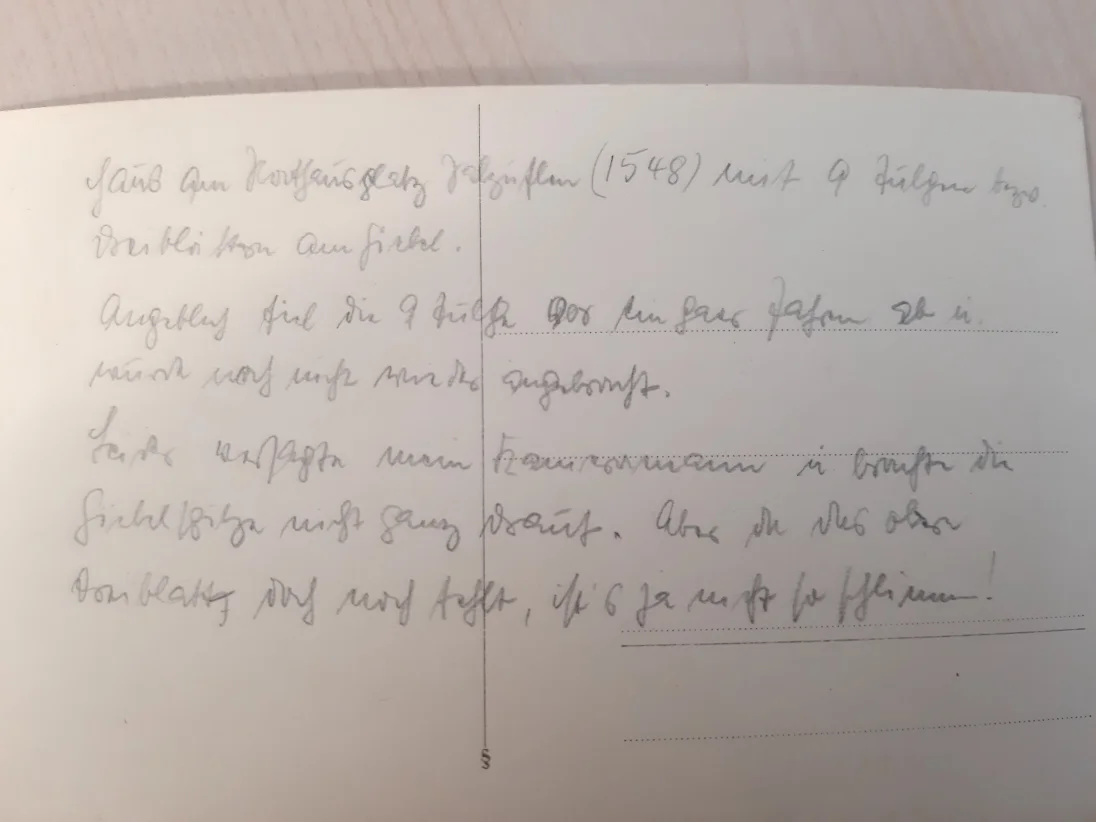 Haus am Rathausplatz Salzuflen (1548) mit 9 Tulpen bzw.
Dreiblättern am Giebel.
Angeblich fiel die 9 Tulpe vor ein paar Jahren ab u.
wurde noch nicht wieder angebracht.
Leider versagte mein Kameramann u brachte die
Giebelspitze nicht ganz drauf. Aber da das obere
Dreiblatt doch noch fehlt, ist's ja nicht so schlimm!
§